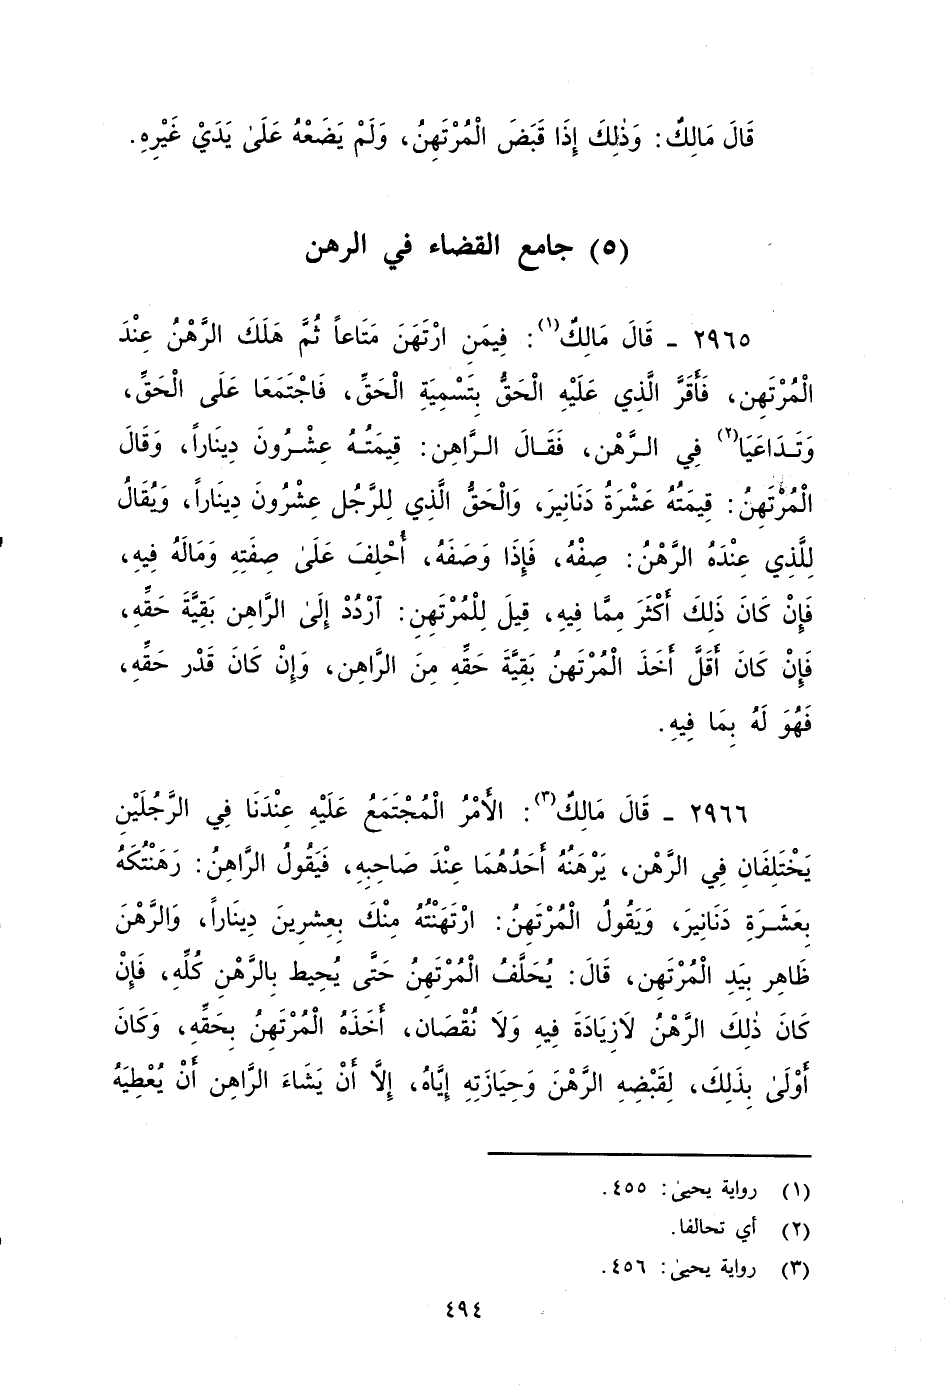 قَالَ مَالِكٌ: وَذٰلِكَ إِذَا قَبَضَ الْمُرْتَهِنُ، وَلَمْ يَضَعْهُ عَلَىٰ يَدَيْ غَيْرِهِ.
(٥) جامع القضاء في الرهن
٢٩٦٥ ـ قَالَ مَالِكٌ(١): فِيمَنِ ارْتَهَنَ مَتَاعاً ثُمَّ هَلَكَ الرَّهْنُ عِنْدَ
الْمُرْتَهِنِ، فَأَقَرَّ الَّذِي عَلَيْهِ الْحَقُّ بِتَسْمِيَةِ الْحَقِّ، فَاجْتَمَعَا عَلَى الْحَقِّ،
وَتَـدَاعَيَا(٢) فِي الـرَّهْنِ، فَقَـالَ الـرَّاهِنِ: قِيمَتُـهُ عِشْـرُونَ دِينَاراً، وَقَالَ
الْمُرْتَهِنُ: قِيمَتُهُ عَشْرَةُ دَنَانِيرَ، وَالْحَقُّ الَّذِي لِلرَّجُلِ عِشْرُونَ دِينَاراً، وَيُقَالُ
لِلَّذِي عِنْدَهُ الرَّهْنُ: صِفْهُ، فَإِذَا وَصَفَهُ، أُحْلِفَ عَلَىٰ صِفَتِهِ وَمَالَهُ فِيهِ،
فَإِنْ كَانَ ذَلِكَ أَكْثَرَ مِمَّا فِيهِ، قِيلَ لِلْمُرْتَهِنِ: آرْدُدْ إِلَىٰ الرَّاهِنِ بَقِيَّةَ حَقِّهِ،
فَإِنْ كَانَ أَقَلَّ أَخَذَ الْمُرْتَهِنُ بَقِيَّةَ حَقِّهِ مِنَ الرَّاهِنِ، وَإِنْ كَانَ قَدْر حَقِّهِ،
فَهُوَ لَهُ بِمَا فِيهِ.
٢٩٦٦ ـ قَالَ مَالِكٌ(٣): الأَمْرُ الْمُجْتَمَعُ عَلَيْهِ عِنْدَنَا فِي الرَّجُلَيْنِ
يَخْتَلِفَانِ فِي الرَّهْنِ، يَرْهَنُهُ أَحَدُهُمَا عِنْدَ صَاحِبِهِ، فَيَقُولُ الرَّاهِنُ: رَهَنْتُكَهُ
بِعَشَـرَةِ دَنَانِيرَ، وَيَقُولُ الْمُرْتَهِنُ: ارْتَهَنْتُهُ مِنْكَ بِعِشرِينَ دِينَاراً، وَالرَّهْنَ
ظَاهِر بِيَدِ الْمُرْتَهِنِ، قَالَ: يُحَلَّفُ الْمُرْتَهِنُ حَتَّى يُحِيط بِالرَّهْنِ كُلِّهِ، فَإِنْ
كَانَ ذٰلِكَ الرَّهْنُ لَازِيَادَةَ فِيهِ وَلَا نُقْصَان، أَخَذَهُ الْمُرْتَهِنُ بِحَقِّهِ، وَكَانَ
أَوْلَىٰ بِذَلِكَ، لِقَبْضِهِ الرَّهْنَ وَحِيَازَتِهِ إِيَّاهُ، إِلَّا أَنْ يَشَاءَ الرَّاهِن أَنْ يُعْطِيَهُ
(١) رواية يحيىٰ: ٤٥٥.
(٢) أي تحالفا.
(٣) رواية يحيىٰ: ٤٥٦.
٤٩٤